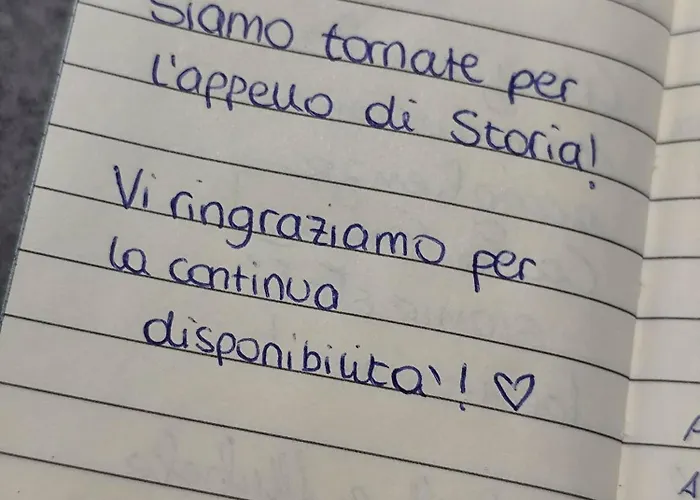 Siamo tornate per
l'appello di Storia!
Vi ringraziamo per
la continua
disponibilità! ♡